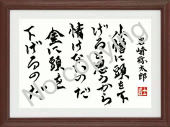 岩崎弥太郎
小僧に頭を下
げると思うから
情けないのだ
金に頭を
下げるのだ
No copying